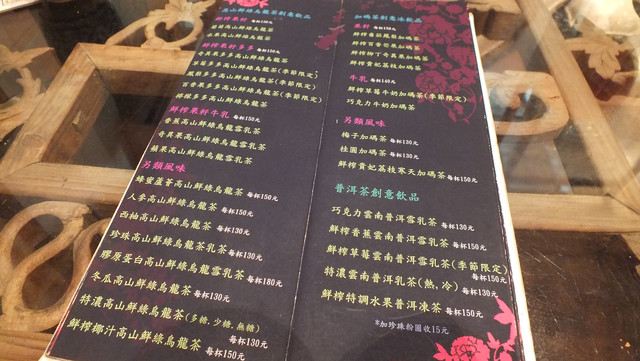 高山鮮綠烏龍茶創意飲品
鮮榨果籽 每杯130元
高山鮮綠烏龍茶
高山鮮綠烏龍茶
鮮榨果籽多多 每杯150元
奇異果多多高山鮮綠烏龍茶
草莓多多高山鮮綠烏龍茶(季節限定)
鳳梨多多高山鮮綠烏龍茶
百香果多多高山鮮綠烏龍茶(季節限定)
檸檬多多高山鮮綠烏龍茶
鮮榨果籽牛乳 每杯150元
香蕉高山鮮綠烏龍雪乳茶
奇異果高山鮮綠烏龍雪乳茶
蘋果高山鮮綠烏龍雪乳茶
另類風味
蜂蜜蘆薈高山鮮綠烏龍茶 每杯150元
人多高山鮮綠烏龍茶 每杯150元
西柚高山鮮綠烏龍茶 每杯130元
珍珠高山鮮綠烏龍茶乳茶 每杯130元
膠原蛋白高山鮮綠烏龍雪乳茶 每杯180元
冬瓜高山鮮綠烏龍茶 每杯130元
特濃高山鮮綠烏龍茶(多糖、少糖、無糖) 每杯130元
鮮榨椰汁高山鮮綠烏龍茶 每杯150元
加碼茶創意冰飲品
果籽 每杯150元
鮮榨香茄鳳梨加碼茶
鮮榨百香芒果加碼茶
鮮榨柳丁奇異果加碼茶
鮮榨貴妃荔枝加碼茶
牛乳 每杯140元
鮮榨草莓牛奶加碼茶(季節限定)
巧克力牛奶加碼茶
另類風味
梅子加碼茶 每杯130元
桂圓加碼茶 每杯130元
鮮榨貴妃荔枝寒天加碼茶 每杯150元
普洱茶創意飲品
巧克力雲南普洱雪乳茶 每杯130元
鮮榨香蕉雲南普洱雪乳茶 每杯150元
鮮榨草莓雲南普洱雪乳茶(季節限定) 每杯150元
特濃雲南普洱乳茶(熱、冷) 每杯130元
鮮榨特調水果普洱凍茶 每杯150元
*加珍珠粉圓收15元